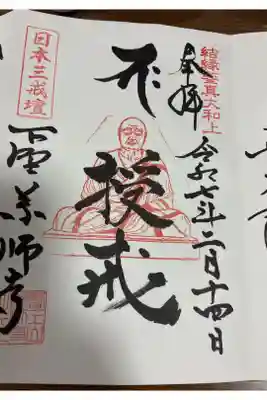 結縁鑑真大和上
奉拝
令和七年二月十四日
授戒
日本三戒壇
下野薬師寺